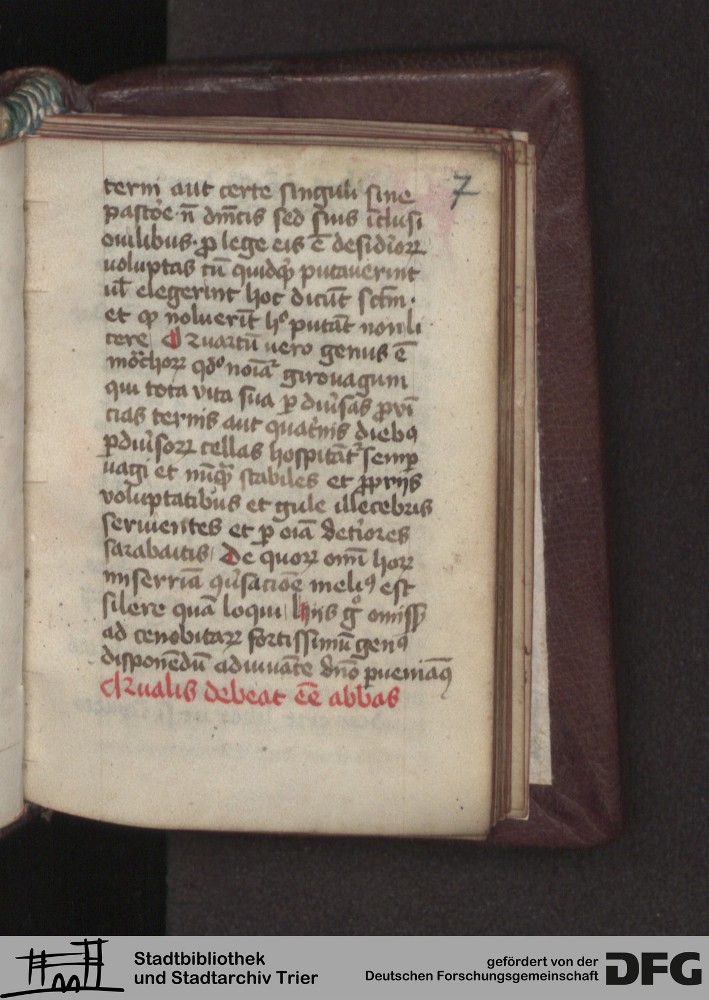 terni aut certe singuli sine
pastoꝛe · n̄ dn̄icis sed suis īclusi
ouilibus · ꝓ lege eis ē desidioꝝ
voluptas cū quidqͥd putauerint
ul̄ elegerint hoc dicūt sc̄m ·
et qͦ noluerīt hͦ putāt non li
cere Quartū vero genus ē
mōchoꝝ qd̕ noīaᷓ girouagum
qui tota vita sua ꝑ diu̕sas ꝓvī
cias ternis aut quat̕nis diebꝰ
ꝑ diu̕soꝝ cellas hospitātᷓ semꝑ
uagi et nūqᷓ stabiles et ꝓprijs
voluptatibus et gule illecebris
seruientes et ꝑ oīa det̕iores
sarabaitis De quoꝝ om̄i hoꝝ
miserrīa ꝯu̕sacioē meliꝰ est
silere quā loqui hijs gͦ omiss̄
ad cenobitaꝝ fortissimū genꝰ
disponēdū adiuuāte dn̄o ꝑueniāꝰ
Qualis debeat ēē abbas
7
Stadtbibliothek
und Stadtarchiv Trier
gefördert von der
Deutschen Forschungsgemeinschaft
DFG